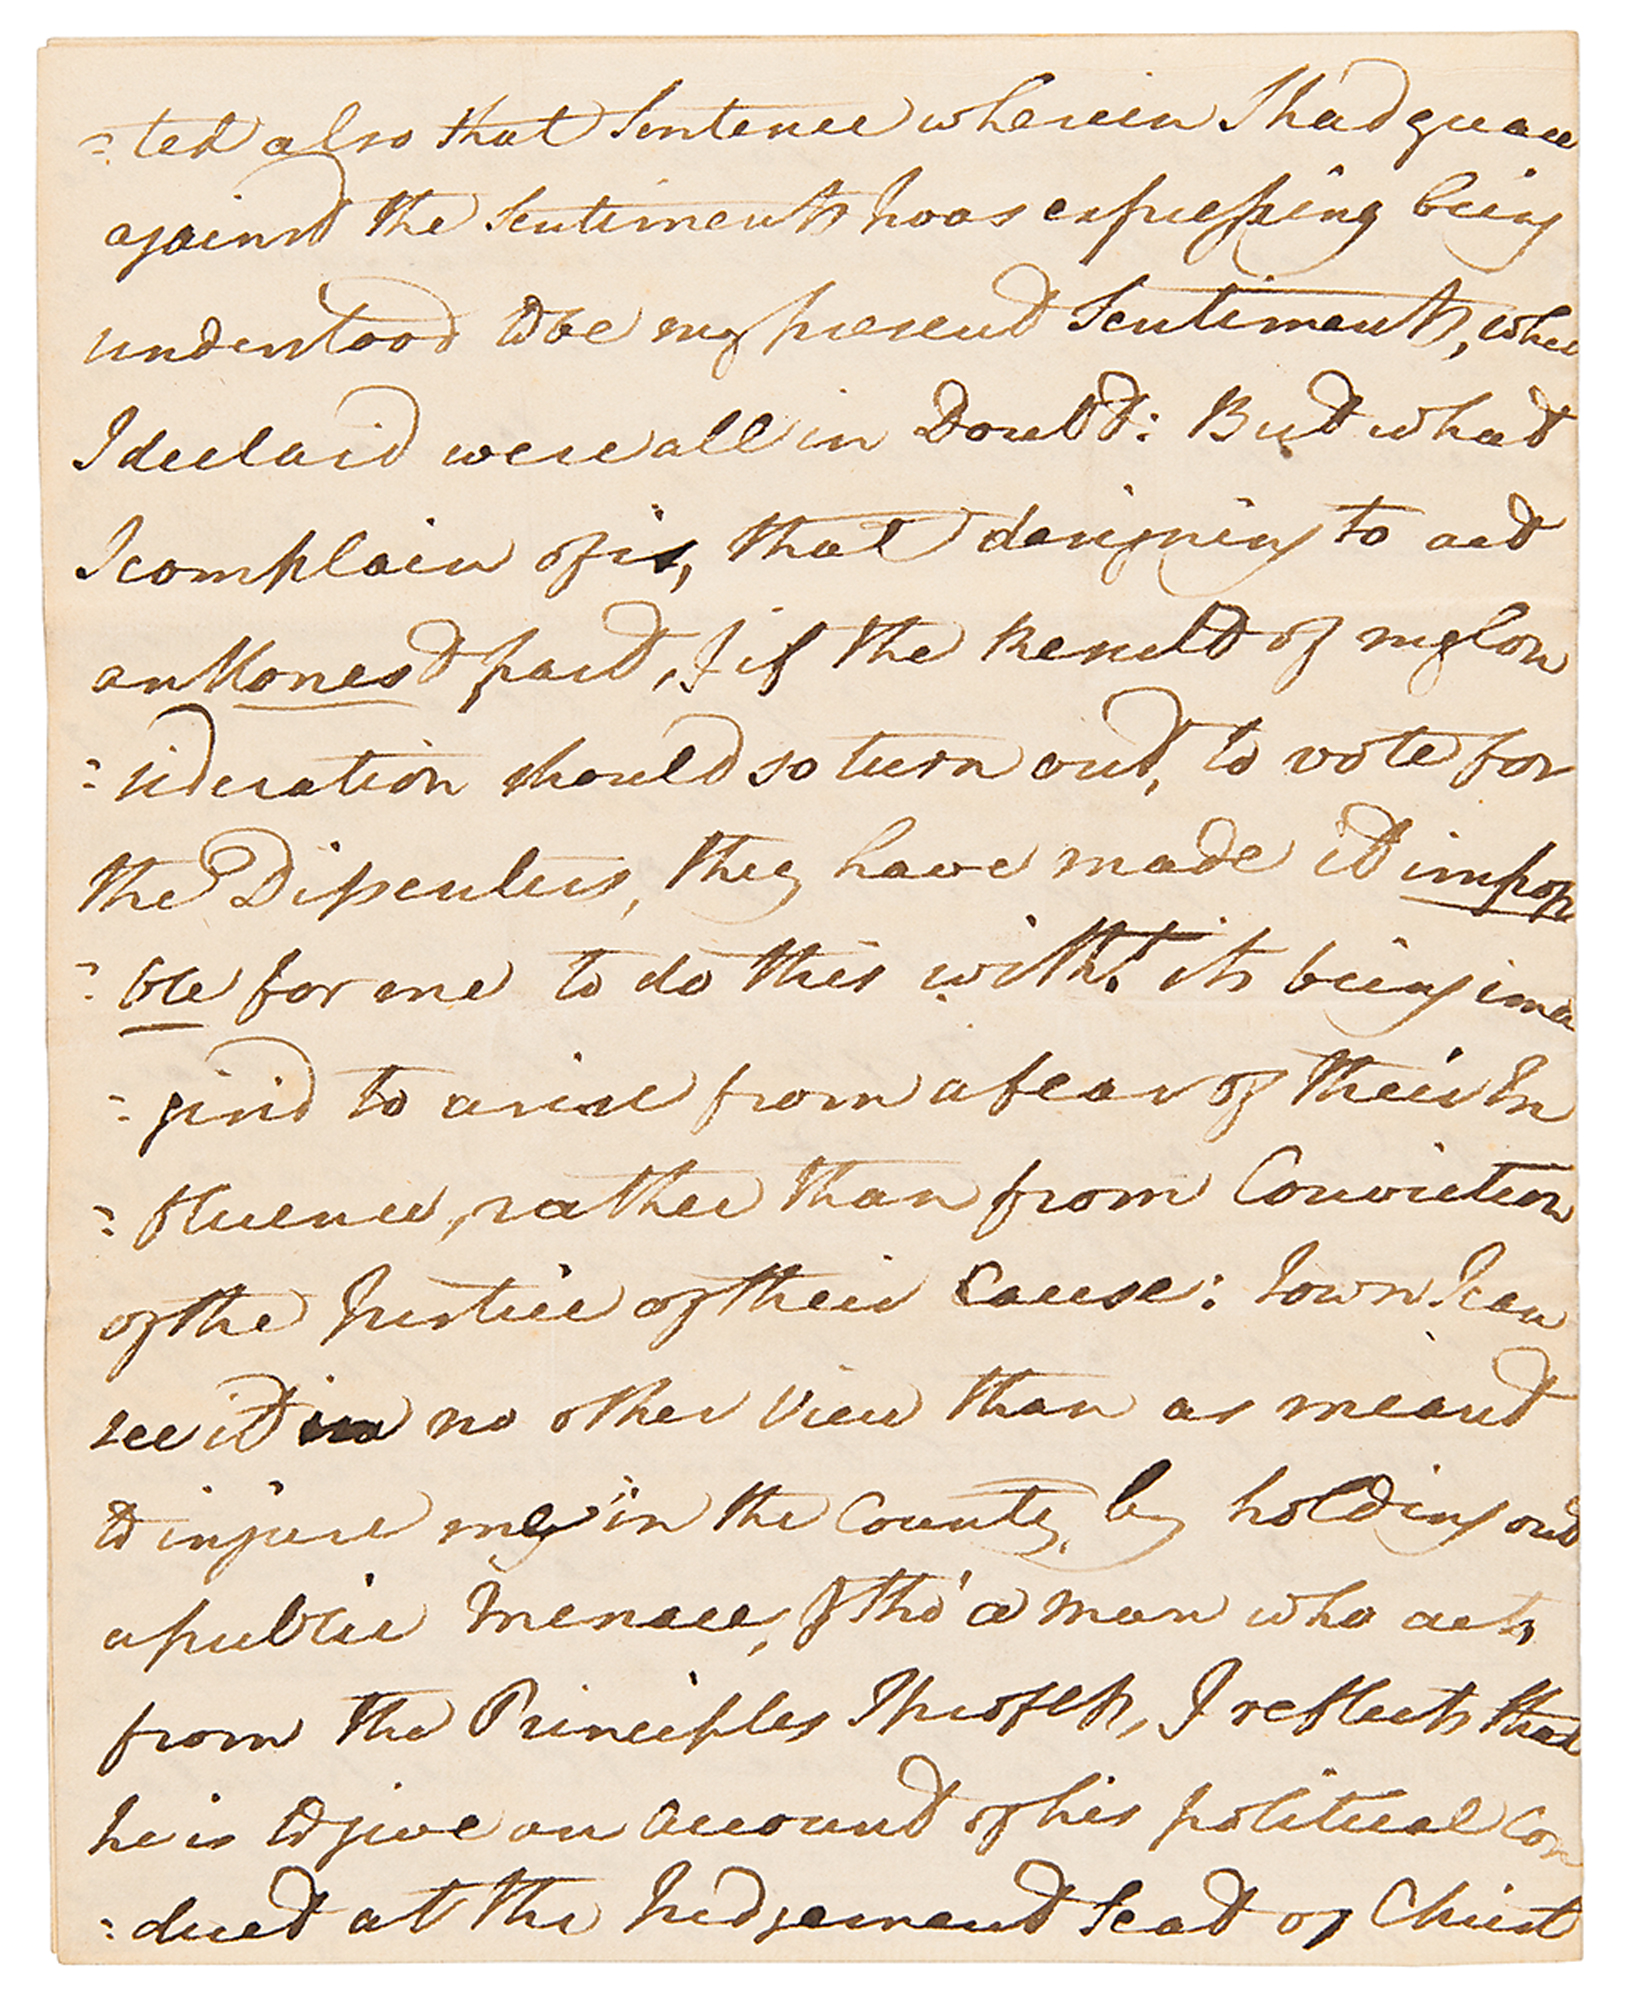 =ted also that Sentence wherein I had guarded
against the Sentiments I was expressing being
understood to be my present Sentiments, whch
I declard were all in Doubt: But what
I complain of is, that designing to act
an Honest part, & if the Result of my Con
=sideration should so turn out, to vote for
the Dissenters, they have made it imposs
=ble for me to do this witht. its being ima
=gind to arise from a fear of their In
=fluence, rather than from Conviction
of the Justice of their Cause: I own I can
see it in no other View than as meant
to injure me in the County, by holding out
a public Menace, & tho' a man who acts,
from the Principles I profess, & reflects that
he is to give an account of his political Con
=duct at the Judgement Seat of Christ